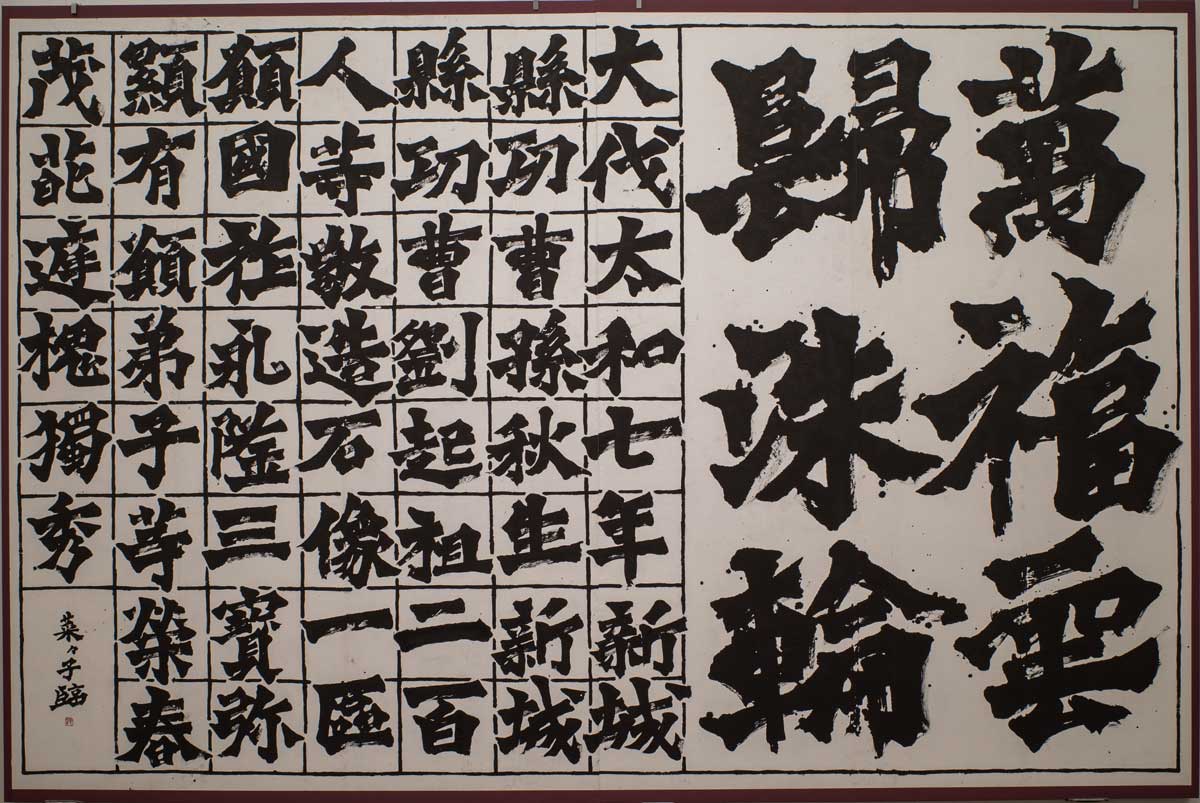 萬福雲
歸洙輪
大代太和七年新城
縣功曹孫秋生新城
縣功曹劉起祖二百
人等敬造石像一區
願國祚永隆三寶弥
顯有願弟子等榮春
茂葩遐槐獨秀
菜々子臨